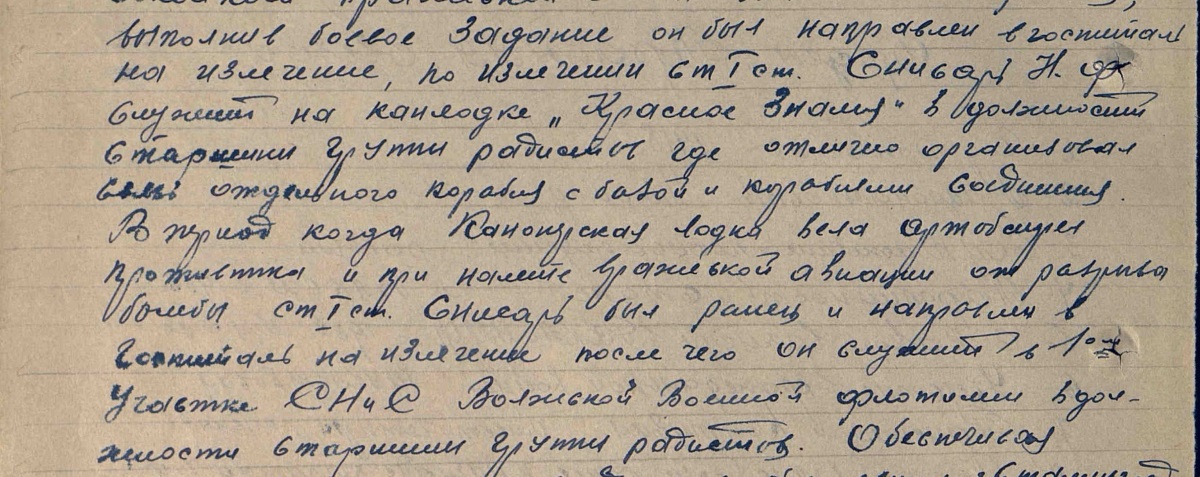 выполнив боевое задание он был направлен в госпиталь
на излечение, по излечении ст I ст. Снисарь Н. Ф
служит на канлодке „Красное Знамя" в должности
старшины группы радистов где отлично организовал
связь отдельного корабля с базой и кораблями соединения.
В период когда Канонерская лодка вела артобстрел
противника и при налете вражеской авиации от разрыва
бомбы ст I ст. Снисарь был ранен и направлен в
госпиталь на излечение после чего он служит в 1ом
Участке СНиС Волжской Военной флотилии в дол-
жности старшины группы радистов. Обеспечивая